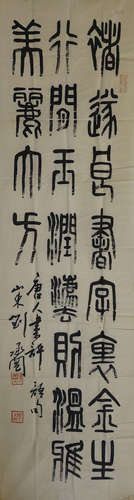 褚遂良書字裏金生
行間玉潤灋則溫雅
美麗大方
唐人書評句
山東劉